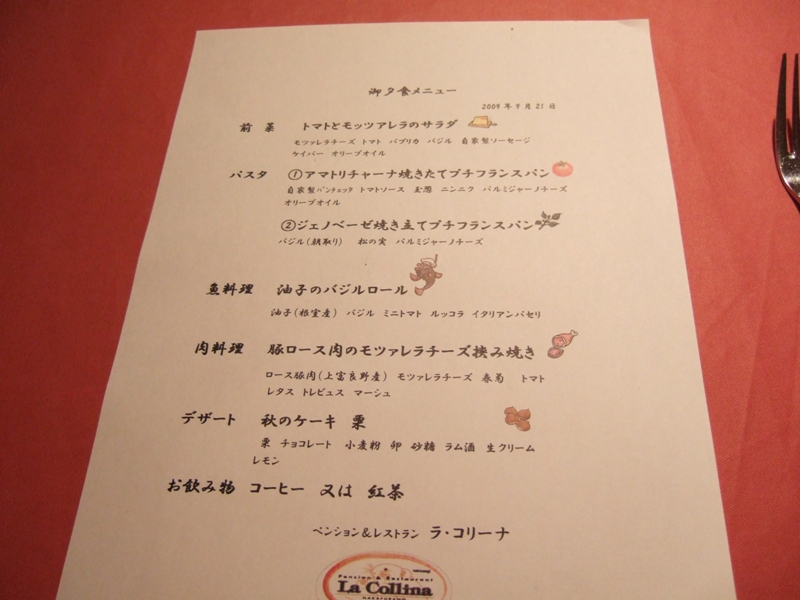 御夕食メニュー
2009年9月21日
前菜 トマトとモッツアレラのサラダ
モッツァレラチーズ トマト パプリカ バジル 自家製ソーセージ
ケイパー オリーブオイル
パスタ ①アマトリチャーナ焼きたてプチフランスパン
自家製パンチェッタ トマトソース 玉葱 ニンニク パルミジャーノチーズ
オリーブオイル
②ジェノベーゼ焼き立てプチフランスパン
バジル(朝取り) 松の実 パルミジャーノチーズ
魚料理 油子のバジルロール
油子(根室産) バジル ミニトマト ルッコラ イタリアンパセリ
肉料理 豚ロース肉のモツァレラチーズ挟み焼き
ロース豚肉(上富良野産) モツァレラチーズ 春菊 トマト
レタス トレビュス マーシュ
デザート 秋のケーキ 栗
栗 チョコレート 小麦粉 卵 砂糖 ラム酒 生クリーム
レモン
お飲み物 コーヒー 又は 紅茶
ペンション&レストラン ラ・コリーナ
Pension & Restaurant
La Collina